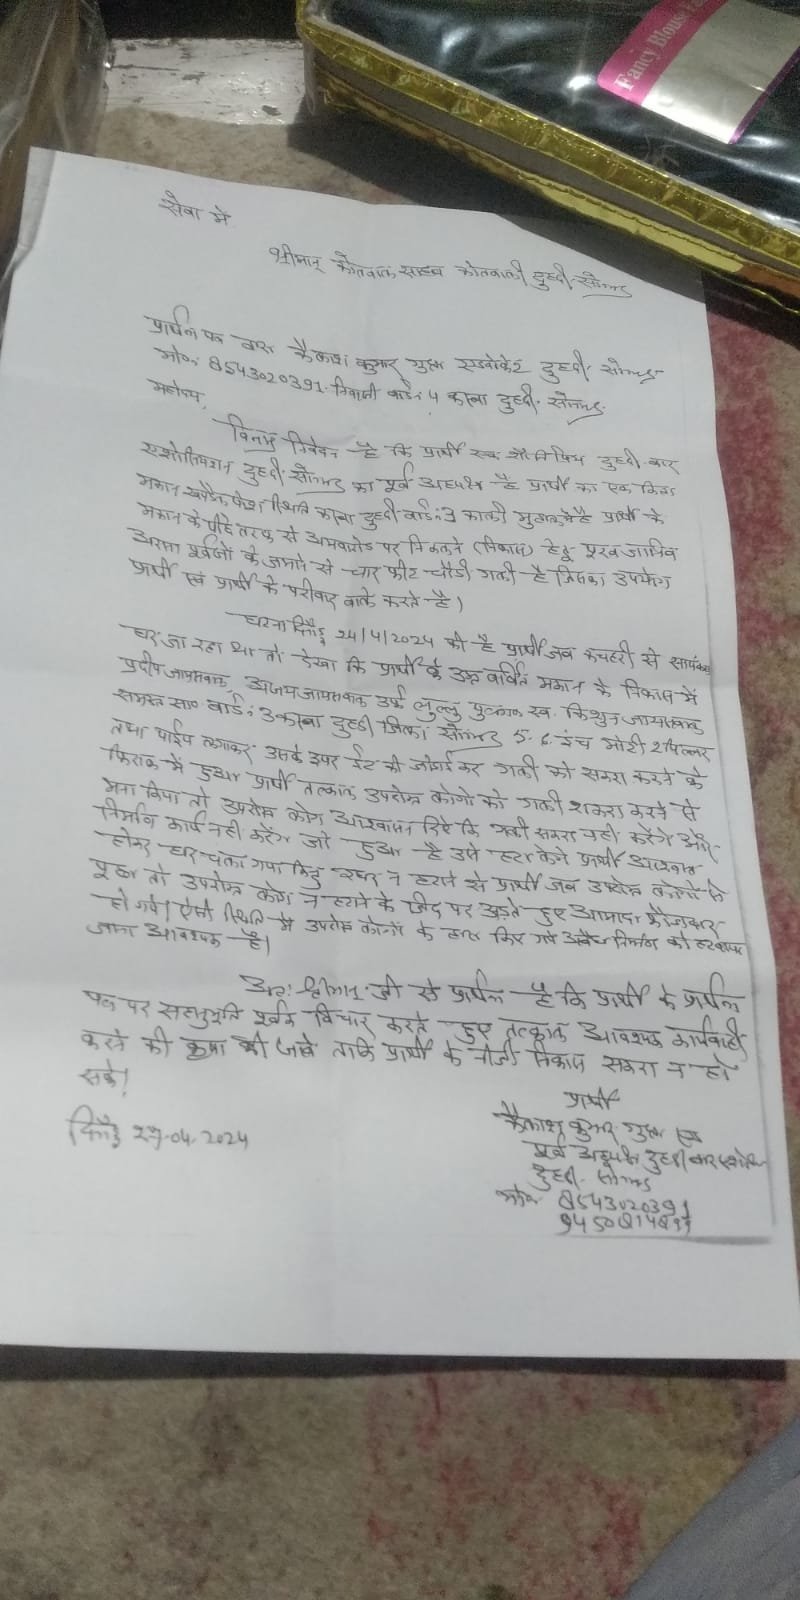 Fancy Blouse
सेवा में
श्रीमान् कोतवाल साहब कोतवाली दुद्धी सोनभद्र
प्रार्थना पत्र द्वारा कैलाश कुमार गुप्ता एडवोकेट दुद्धी सोनभद्र
मो०नं 8543020391 निवासी वार्ड नं 4 कस्बा दुद्धी सोनभद्र
महोदय,
विनम्र निवेदन है कि प्रार्थी एक दुद्धी बार
एसोसिएशन दुद्धी सोनभद्र का पूर्व अध्यक्ष है प्रार्थी का एक किता
मकान स्थिति कस्बा दुद्धी वार्ड नं 3 में है प्रार्थी के
मकान के पीछे तरफ से पर निकलने (निकास) हेतु
अरसा पूर्वजों के जमाने से चार फीट चौडी गली है जिसका उपयोग
प्रार्थी एवं प्रार्थी के परीवार वाले करते है।
घटना दिनाँक 24/4/2024 की है प्रार्थी जब कचहरी से सायंकाल
घर जा रहा था तो देखा कि प्रार्थी के उक्त वर्णित मकान के निकास में
प्रदीप जायसवाल, अजय जायसवाल उर्फ लुल्लु पुत्रगण स्व. किशुन जायसवाल
समस्त सा० वार्ड नं 3 कस्बा दुद्धी जिला सोनभद्र 5, 6 इंच मोटी 2 पिल्लर
तथा पाईप लगाकर उसके उपर ईंट की जोडाई कर गली को सकरा करने के
फिराक में हुआ प्रार्थी तत्काल उपरोक्त लोगो को गली शकरा करने से
मना किया तो उपरोक्त लोग आश्वासन दिए कि गली सकरा नही करेंगे और
निर्माण कार्य नही करेंगे जो हुआ है उसे हटा लेंगे प्रार्थी आश्वस्त
होकर घर चला गया किन्तु न हटाने से प्रार्थी जब उपरोक्त लोगो से
पूछा तो उपरोक्त लोग न हटाने के जिद पर अड़ते हुए आमादा फौजदारी
हो गये। ऐसी स्थिति में उपरोक्त लोगों के द्वारा किए गये अवैध निर्माण को हटवाया
जाना आवश्यक है।
अतः श्रीमान् जी से प्रार्थना है कि प्रार्थी के प्रार्थना
पत्र पर सहानुभूति पूर्वक विचार करते हुए तत्काल आवश्यक कार्यवाही
करने की कृपा की जावे ताकि प्रार्थी के निकास सकरा न हो
सके।
दिनाँक 27.04.2024
प्रार्थी
कैलाश कुमार गुप्ता एड०
पूर्व अध्यक्ष दुद्धी बार
दुद्धी सोनभद्र
मो०नं 8543020391